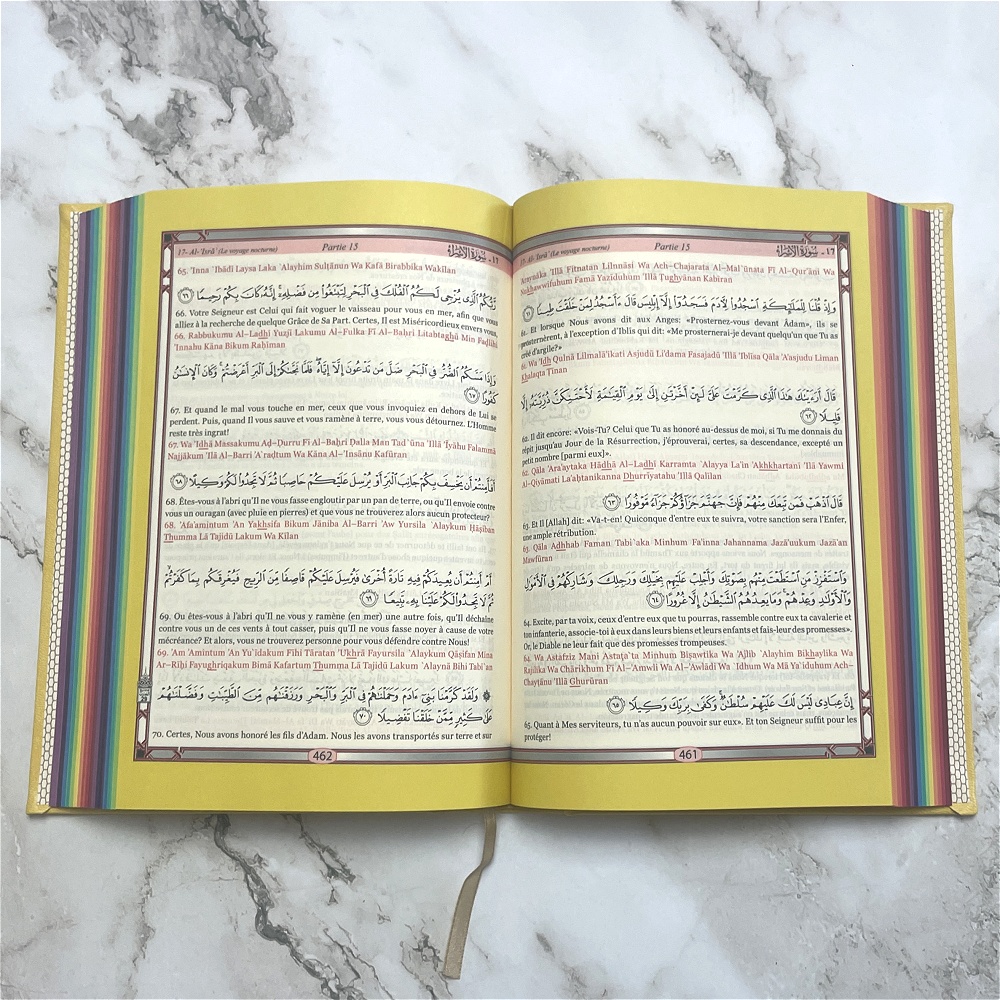 17- Al-'Isrâ' (Le voyage nocturne)
Partie 15
١٧- سُورَةُ الإِسْرَاءِ
'Araynāka 'Illā Fitnatan Lilnnāsi Wa Ach-Chajarata Al-Mal`ūnata Fī Al-Qur'āni Wa
Nukhawwifuhum Famā Yazīduhum 'Illā Ţughyānan Kabīran
وَإِذْ قُلْنَا لِلْمَلَٰٓئِكَةِ ٱسْجُدُوا۟ لِءَادَمَ فَسَجَدُوٓا۟ إِلَّآ إِبْلِيسَ قَالَ ءَأَسْجُدُ لِمَنْ خَلَقْتَ طِينًا ﴿٦١﴾
61. Et lorsque Nous avons dit aux Anges: «Prosternez-vous devant Âdam», ils se
prosternèrent, à l'exception d'Iblis qui dit: «Me prosternerai-je devant quelqu'un que Tu as
créé d'argile?»
61. Wa 'Idh Qulnā Lilmalā'ikati Asjudū Li'dama Fasajadū 'Illā 'Iblīsa Qāla 'A'asjudu Liman
Khalaqta Ţīnan
قَالَ أَرَءَيْتَكَ هَٰذَا ٱلَّذِى كَرَّمْتَ عَلَىَّ لَئِنْ أَخَّرْتَنِ إِلَىٰ يَوْمِ ٱلْقِيَٰمَةِ لَأَحْتَنِكَنَّ ذُرِّيَّتَهُۥٓ إِلَّا
قَلِيلًا ﴿٦٢﴾
62. Il dit encore: «Vois-Tu? Celui que Tu as honoré au-dessus de moi, si Tu me donnais du
répit jusqu'au Jour de la Résurrection, j'éprouverai, certes, sa descendance, excepté un
petit nombre [parmi eux]».
62. Qāla 'Ara'aytaka Hādhā Al-Ladhī Karramta `Alayya La'in 'Akhkhartani 'Ilā Yawmi
Al-Qiyāmati La'aĥtanikanna Dhurrīyatahu 'Illā Qalīlan
قَالَ ٱذْهَبْ فَمَن تَبِعَكَ مِنْهُمْ فَإِنَّ جَهَنَّمَ جَزَآؤُكُمْ جَزَآءً مَّوْفُورًا ﴿٦٣﴾
63. Et Il [Allah] dit: «Va-t-en! Quiconque d'entre eux te suivra, votre sanction sera l'Enfer,
une ample rétribution.
63. Qāla Adhhab Faman Tabi`aka Minhum Fa'inna Jahannama Jazā'uukum Jazā'an
Mawfūran
وَٱسْتَفْزِزْ مَنِ ٱسْتَطَعْتَ مِنْهُم بِصَوْتِكَ وَأَجْلِبْ عَلَيْهِم بِخَيْلِكَ وَرَجِلِكَ وَشَارِكْهُمْ فِى ٱلْأَمْوَٰلِ
وَٱلْأَوْلَٰدِ وَعِدْهُمْ وَمَا يَعِدُهُمُ ٱلشَّيْطَٰنُ إِلَّا غُرُورًا ﴿٦٤﴾
64. Excite, par ta voix, ceux d'entre eux que tu pourras, rassemble contre eux ta cavalerie et
ton infanterie, associe-toi à eux dans leurs biens et leurs enfants et fais-leur des promesses».
Or, le Diable ne leur fait que des promesses trompeuses.
64. Wa Astafziz Mani Astaţa`ta Minhum Bişawtika Wa 'Ajlib `Alayhim Bikhaylika Wa
Rajilika Wa Chārikhum Fī Al-'Amwli Wa Al-'Awlādi Wa `Idhum Wa Mā Ya`iduhum Ach-
Chayţānu 'Illā Ghurūran
إِنَّ عِبَادِى لَيْسَ لَكَ عَلَيْهِمْ سُلْطَٰنٌ وَكَفَىٰ بِرَبِّكَ وَكِيلًا ﴿٦٥﴾
65. Quant à Mes serviteurs, tu n'as aucun pouvoir sur eux». Et ton Seigneur suffit pour les
protéger!
461
17- Al-'Isrâ' (Le voyage nocturne)
Partie 15
١٧- سُورَةُ الإِسْرَاءِ
65. 'Inna `Ibādī Laysa Laka `Alayhim Sulţānun Wa Kafá Birabbika Wakīlan
رَّبُّكُمُ ٱلَّذِى يُزْجِى لَكُمُ ٱلْفُلْكَ فِى ٱلْبَحْرِ لِتَبْتَغُوا۟ مِن فَضْلِهِۦٓ إِنَّهُۥ كَانَ بِكُمْ رَحِيمًا ﴿٦٦﴾
66. Votre Seigneur est Celui qui fait voguer le vaisseau pour vous en mer, afin que vous
alliez à la recherche de quelque Grâce de Sa Part. Certes, Il est Miséricordieux envers vous.
66. Rabbukumu Al-Ladhī Yuzjī Lakumu Al-Fulka Fī Al-Baĥri Litabtaghū Min Fađlihi
'Innahu Kāna Bikum Raĥīman
وَإِذَا مَسَّكُمُ ٱلضُّرُّ فِى ٱلْبَحْرِ ضَلَّ مَن تَدْعُونَ إِلَّآ إِيَّاهُ فَلَمَّا نَجَّىٰكُمْ إِلَى ٱلْبَرِّ أَعْرَضْتُمْ وَكَانَ ٱلْإِنسَٰنُ
كَفُورًا ﴿٦٧﴾
67. Et quand le mal vous touche en mer, ceux que vous invoquiez en dehors de Lui se
perdent. Puis, quand Il vous sauve et vous ramène à terre, vous vous détournez. L'Homme
reste très ingrat!
67. Wa 'Idhā Massakumu Ađ-Đurru Fī Al-Baĥri Đalla Man Tad`ūna 'Illā 'Īyāhu Falammā
Najjākum 'Ilá Al-Barri 'A`rađtum Wa Kāna Al-'Insānu Kafūran
أَفَأَمِنتُمْ أَن يَخْسِفَ بِكُمْ جَانِبَ ٱلْبَرِّ أَوْ يُرْسِلَ عَلَيْكُمْ حَاصِبًا ثُمَّ لَا تَجِدُوا۟ لَكُمْ وَكِيلًا ﴿٦٨﴾
68. Êtes-vous à l'abri qu'Il ne vous fasse engloutir par un pan de terre, ou qu'Il envoie contre
vous un ouragan (avec pluie en pierres) et que vous ne trouverez alors aucun protecteur?
68. 'Afa'amintum 'An Yakhsifa Bikum Jāniba Al-Barri 'Aw Yursila `Alaykum Ĥāşiban
Thumma Lā Tajidū Lakum Wa Kīlan
أَمْ أَمِنتُمْ أَن يُعِيدَكُمْ فِيهِ تَارَةً أُخْرَىٰ فَيُرْسِلَ عَلَيْكُمْ قَاصِفًا مِّنَ ٱلرِّيحِ فَيُغْرِقَكُم بِمَا كَفَرْتُمْ
ثُمَّ لَا تَجِدُوا۟ لَكُمْ عَلَيْنَا بِهِۦ تَبِيعًا ﴿٦٩﴾
69. Ou êtes-vous à l'abri qu'Il ne vous y ramène (en mer) une autre fois, qu'Il déchaîne
contre vous un de ces vents à tout casser, puis qu'Il ne vous fasse noyer à cause de votre
mécréance? Et alors, vous ne trouverez personne pour vous défendre contre Nous!
69. 'Am 'Amintum 'An Yu`īdakum Fīhi Tāratan 'Ukhrá Fayursila `Alaykum Qāşifan Mina
Ar-Rīĥi Fayughriqakum Bimā Kafartum Thumma Lā Tajidū Lakum `Alaynā Bihi Tabī`an
۞ وَلَقَدْ كَرَّمْنَا بَنِىٓ ءَادَمَ وَحَمَلْنَٰهُمْ فِى ٱلْبَرِّ وَٱلْبَحْرِ وَرَزَقْنَٰهُم مِّنَ ٱلطَّيِّبَٰتِ وَفَضَّلْنَٰهُمْ
عَلَىٰ كَثِيرٍ مِّمَّنْ خَلَقْنَا تَفْضِيلًا ﴿٧٠﴾
70. Certes, Nous avons honoré les fils d'Adam. Nous les avons transportés sur terre et sur
462